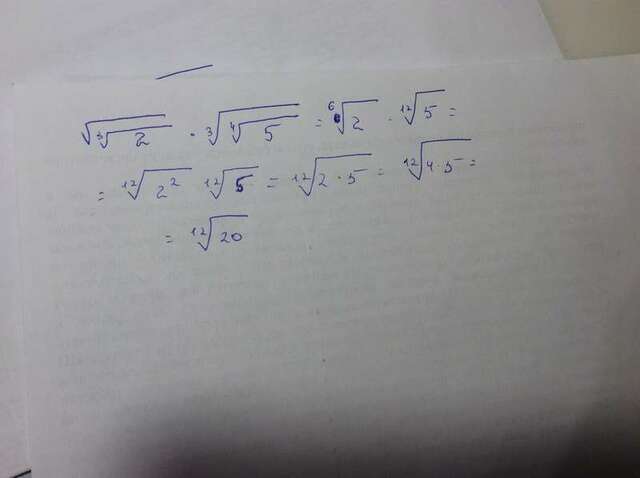 √(∛2) · ∛(∜5) = ⁶√2 · ¹²√5 =
= ¹²√2² ¹²√5 = ¹²√2 · 5 = ¹²√4 · 5 =
= ¹²√20